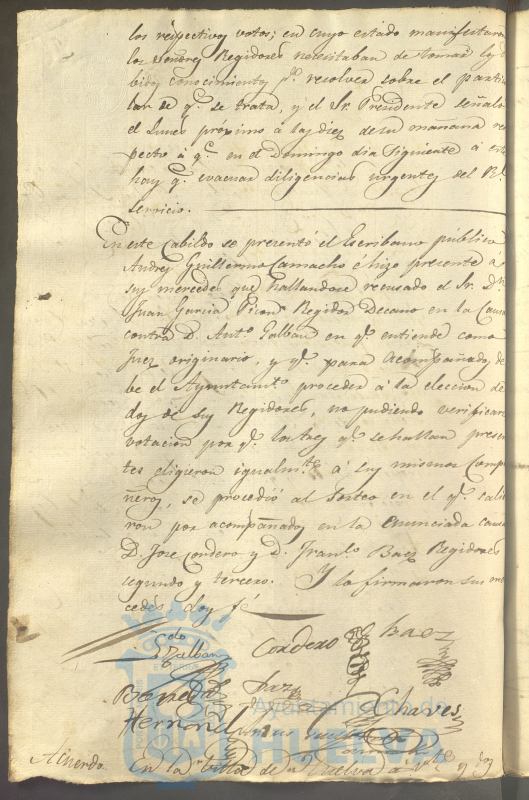 los respectivos votos; en cuyo estado manifestaron
los Señores Regidores necesitaban de tomar el de
bido conocimiento pª. resolver sobre el parti
lar de qe. se trata, y el Sr. Presidente señalo
el Lunes próximo á las diez de su mañana res
pecto á qe. en el Domingo dia siguiente á este
hay qe. evacuar diligencias urgentes del Rl.
servicio.
En este Cabildo se presentó el Escribano público
Andres Guillermo Camacho é hizo presente a
sus mercedes que hallandose recusado el Sr. Dn.
Juan Garcia Regidor Decano en la Causa
contra D. Anto. Galban en qe. entiende como
Juez originario, y qe. para Acompañados de
be el Ayuntamto. proceder á la eleccion de
dos de sus Regidores, no pudiendo verificarse
votacion por qe. los tres qe. se hallan presen
tes eligieron igualmte. á sus mismos Compa
ñeros, se procedió al Sorteo en el qe. salie
ron por acompañados en la enunciada causa
D. Jose Cordero y D. Franco. Baez Regidores
segundo y tercero. Y lo firmaron sus mer
cedes, doy fé
Galban Cordero Baez
Chaves
Hernandez
Ayuntamiento de
HUELVA
Acuerdo En la Villa de Huelva á